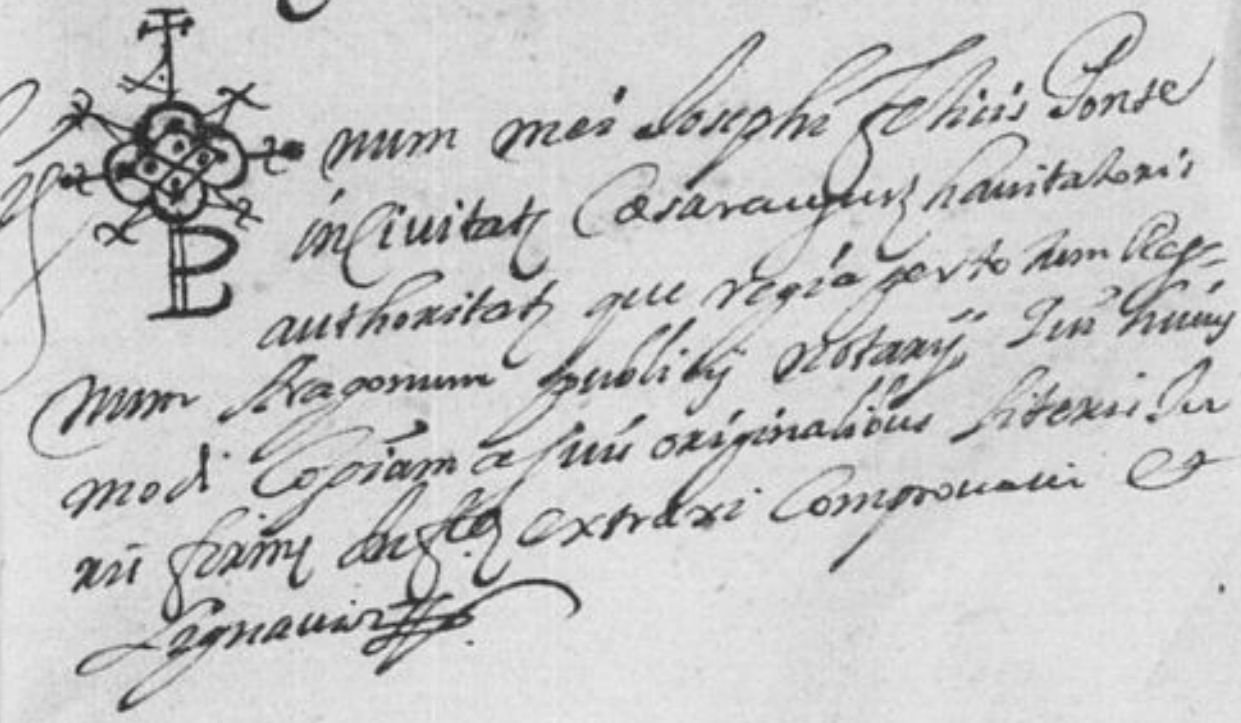 num mei Josephi Felicis Ponse
in Civitatẽ Cæsaraugustẽ havitatoris
authoritatẽ que regia per totum Reg-
num Aragonum publicij Notarij Qui huius
modi Copiam a suis originalibus literis Ju
ris firmẽ extraxi Comprovavi et
signavi